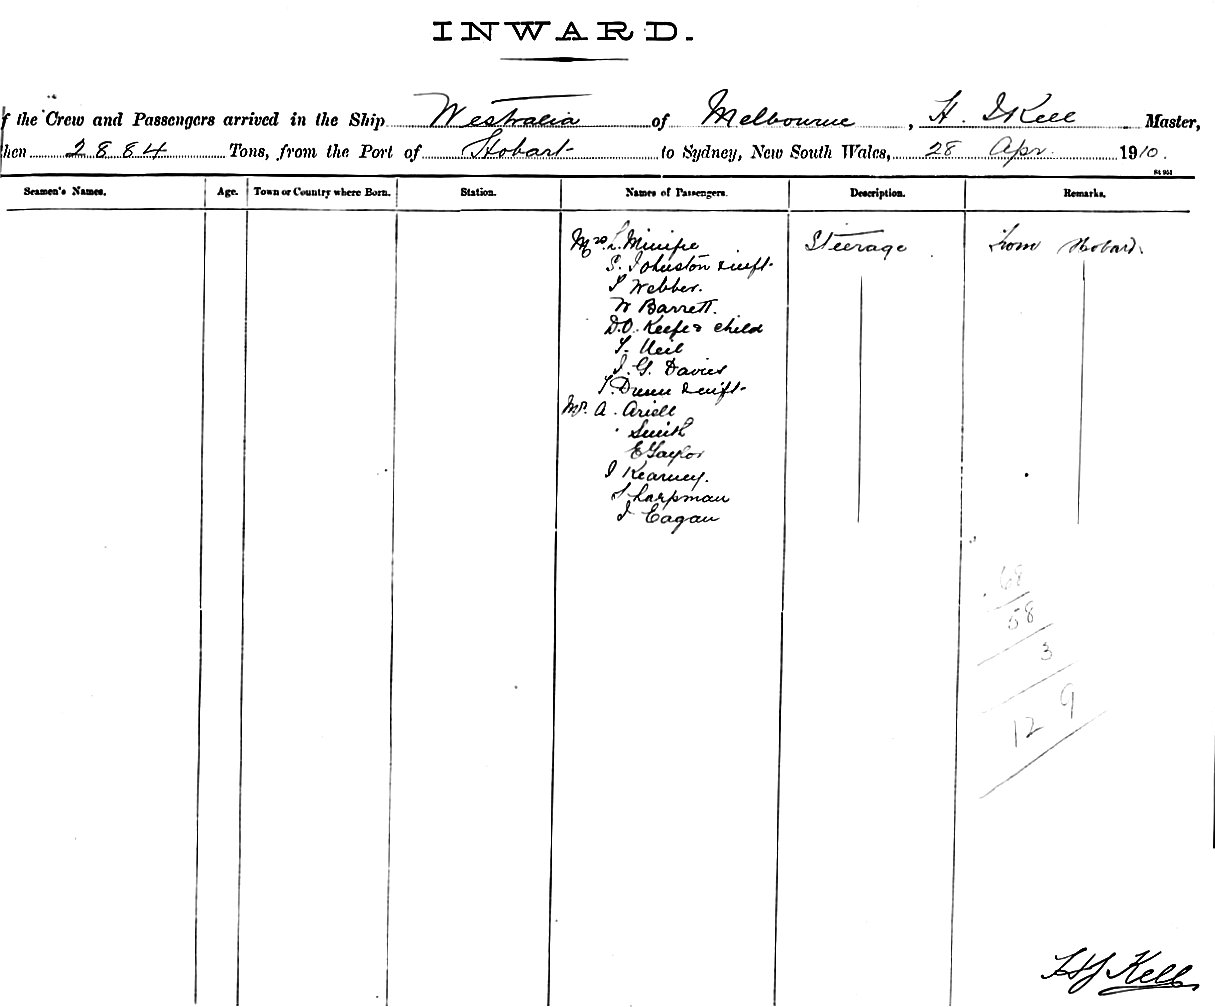 INWARD.
f the Crew and Passengers arrived in the Ship Westralia of Melbourne, H. J Kell Master,
hen 2884 Tons, from the Port of Hobart to Sydney, New South Wales, 28 Apr. 1910.
Seamen's Names. Age. Town or Country where Born. Station. Names of Passengers. Description. Remarks.
Mrs. L. Minife Steerage From Hobart.
S. Johnston & wife
J Webber.
W Barrett.
D.O. Keefe & child
T. Neil
J. G. Davies
T. Dunn & wife
Mr. A. Ariell
Smith
E Taylor
J Kearney.
J Chapman
J Eagan
68
58
3
129
H J Kell